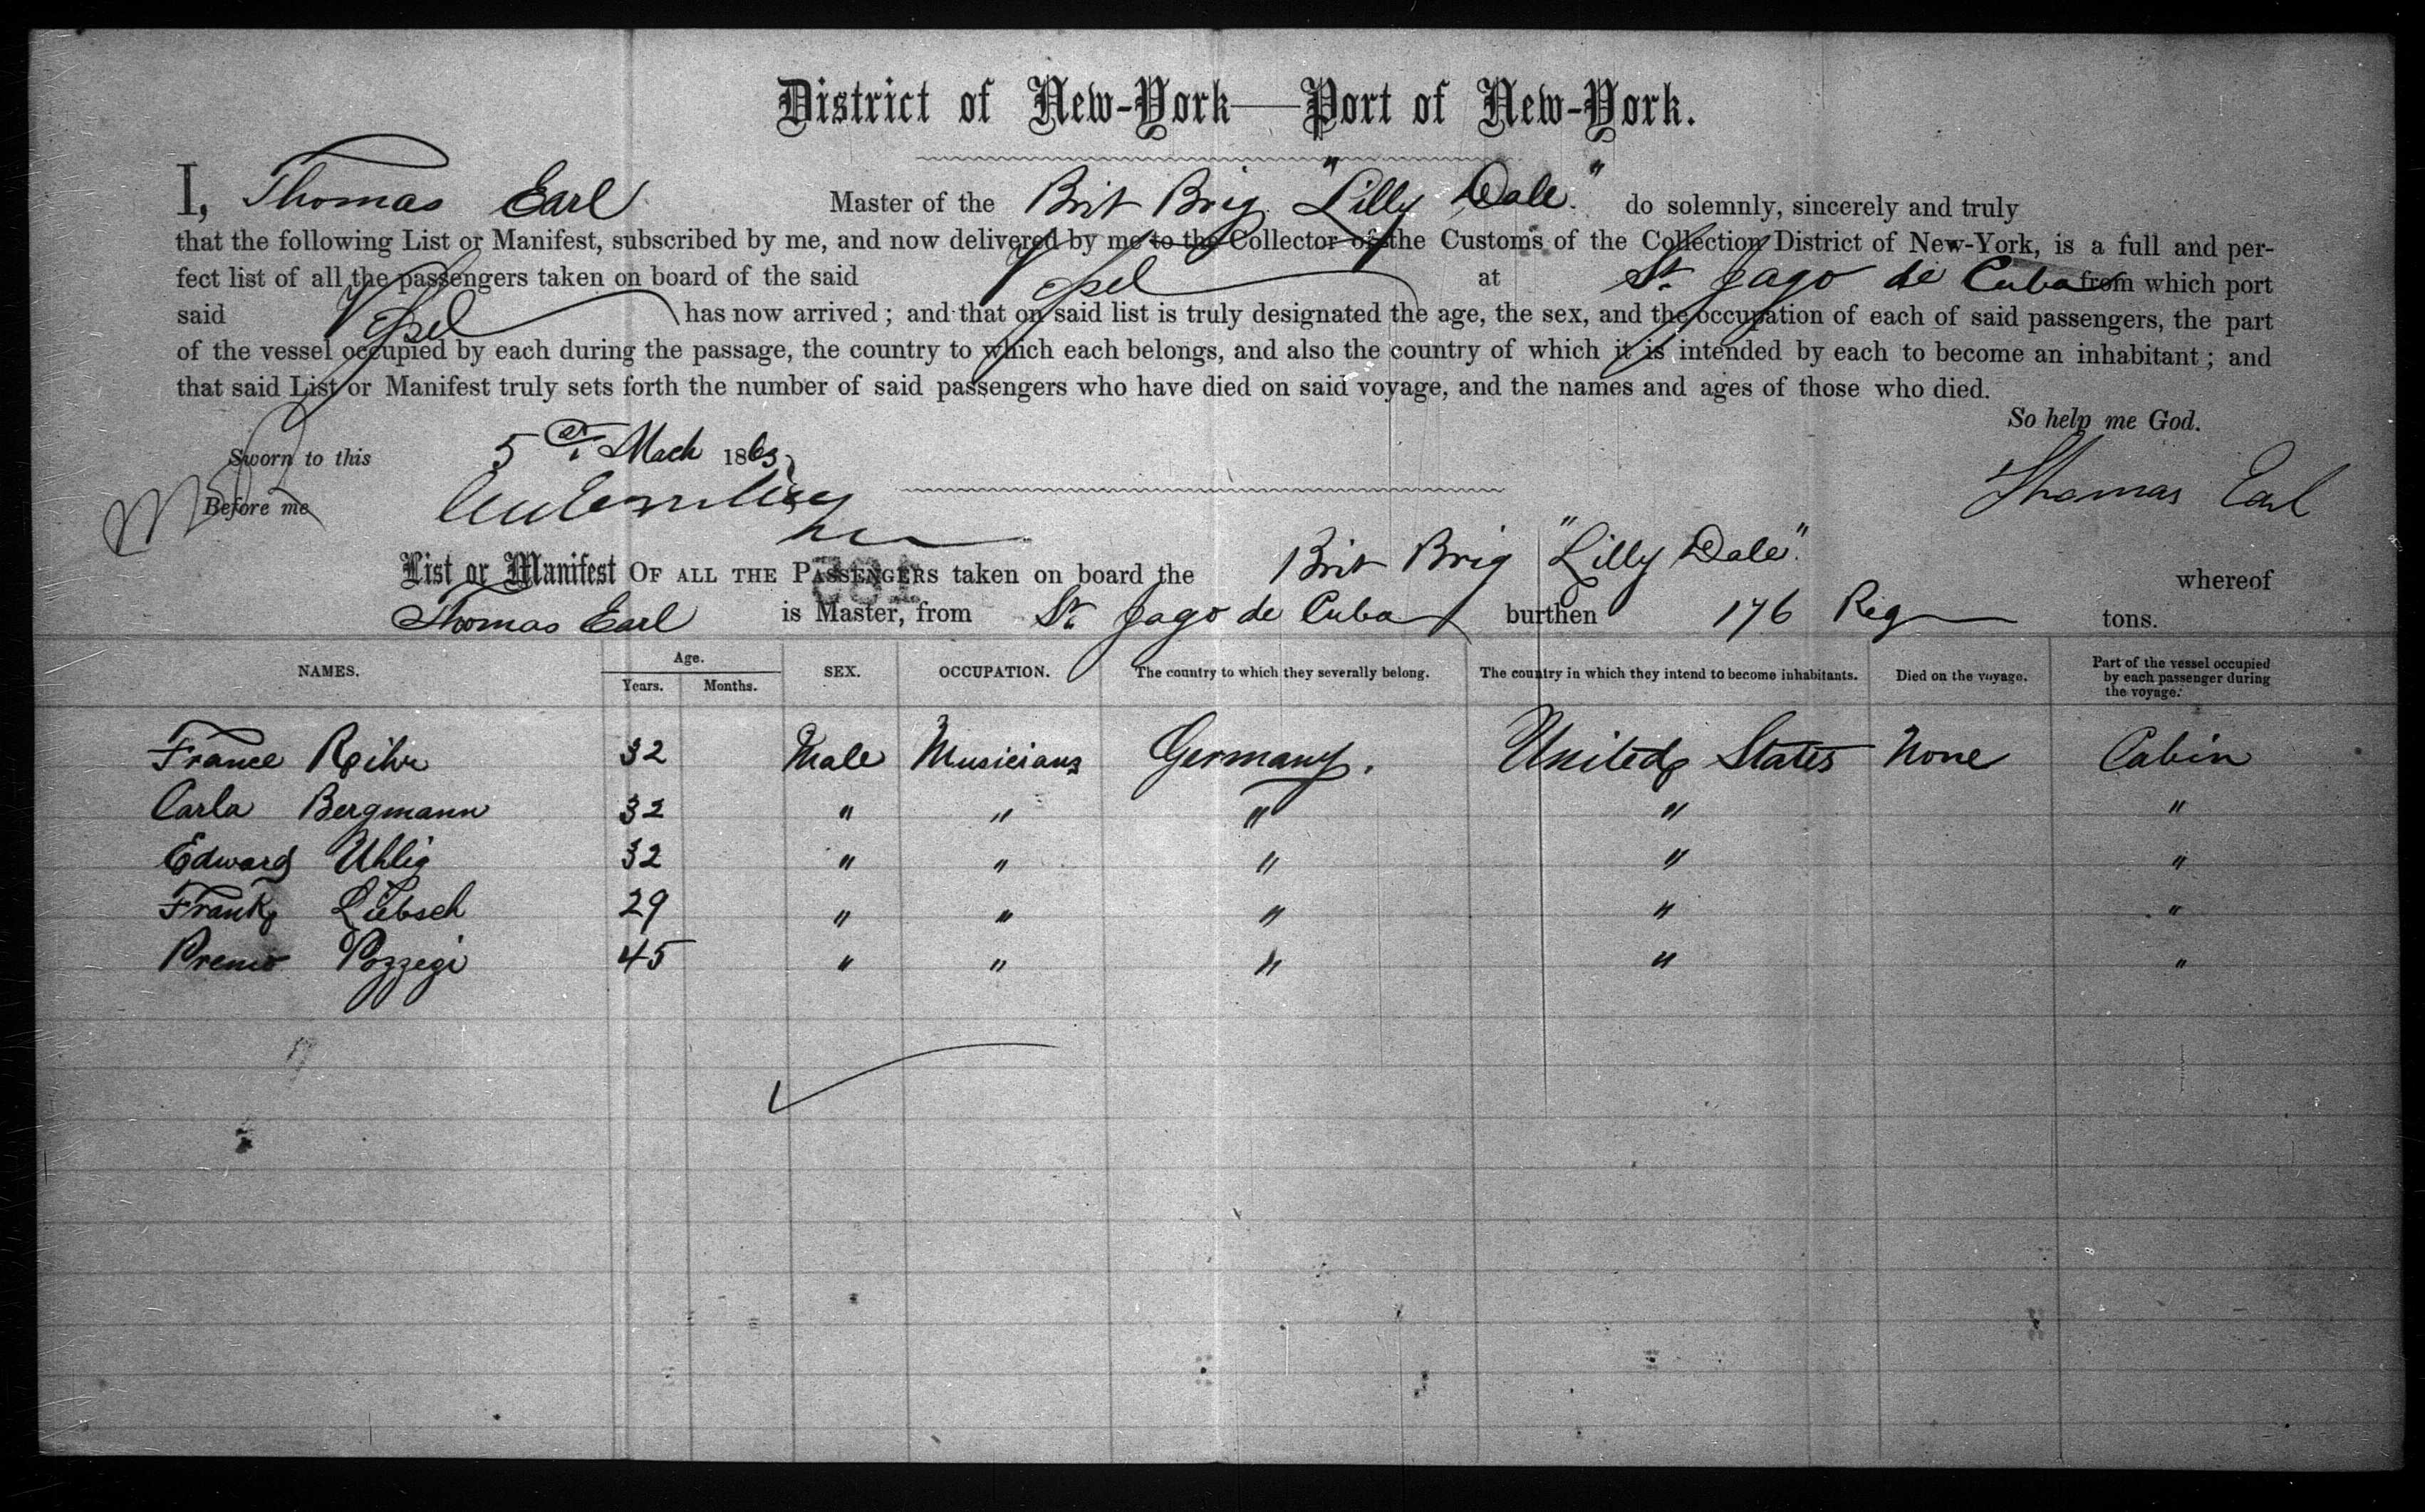 District of New-York—Port of New-York.
I, Thomas Earl Master of the Brit Brig "Lilly Dale." do solemnly, sincerely and truly
that the following List or Manifest, subscribed by me, and now delivered by me to the Collector of the Customs of the Collection District of New-York, is a full and per-
fect list of all the passengers taken on board of the said Vessel at St. Jago de Cuba from which port
said Vessel has now arrived; and that on said list is truly designated the age, the sex, and the occupation of each of said passengers, the part
of the vessel occupied by each during the passage, the country to which each belongs, and also the country of which it is intended by each to become an inhabitant; and
that said List or Manifest truly sets forth the number of said passengers who have died on said voyage, and the names and ages of those who died.
So help me God.
Sworn to this 5 Mach 1863
Before me
Thomas Earl
List or Manifest OF ALL THE PASSENGERS taken on board the Brit Brig "Lilly Dale". whereof
Thomas Earl is Master, from St. Jago de Cuba burthen 176 Reg tons.
NAMES. Age. Years. Months. SEX. OCCUPATION. The country to which they severally belong. The country in which they intend to become inhabitants. Died on the voyage. Part of the vessel occupied by each passenger during the voyage.
France Reihr 32 Male Musicians Germany. United States None Cabin
Carla Bergmann 32 " " " " "
Edward Uhlig 32 " " " " "
Frank Liebsch 29 " " " " "
Premo Pozzegi 45 " " " " "